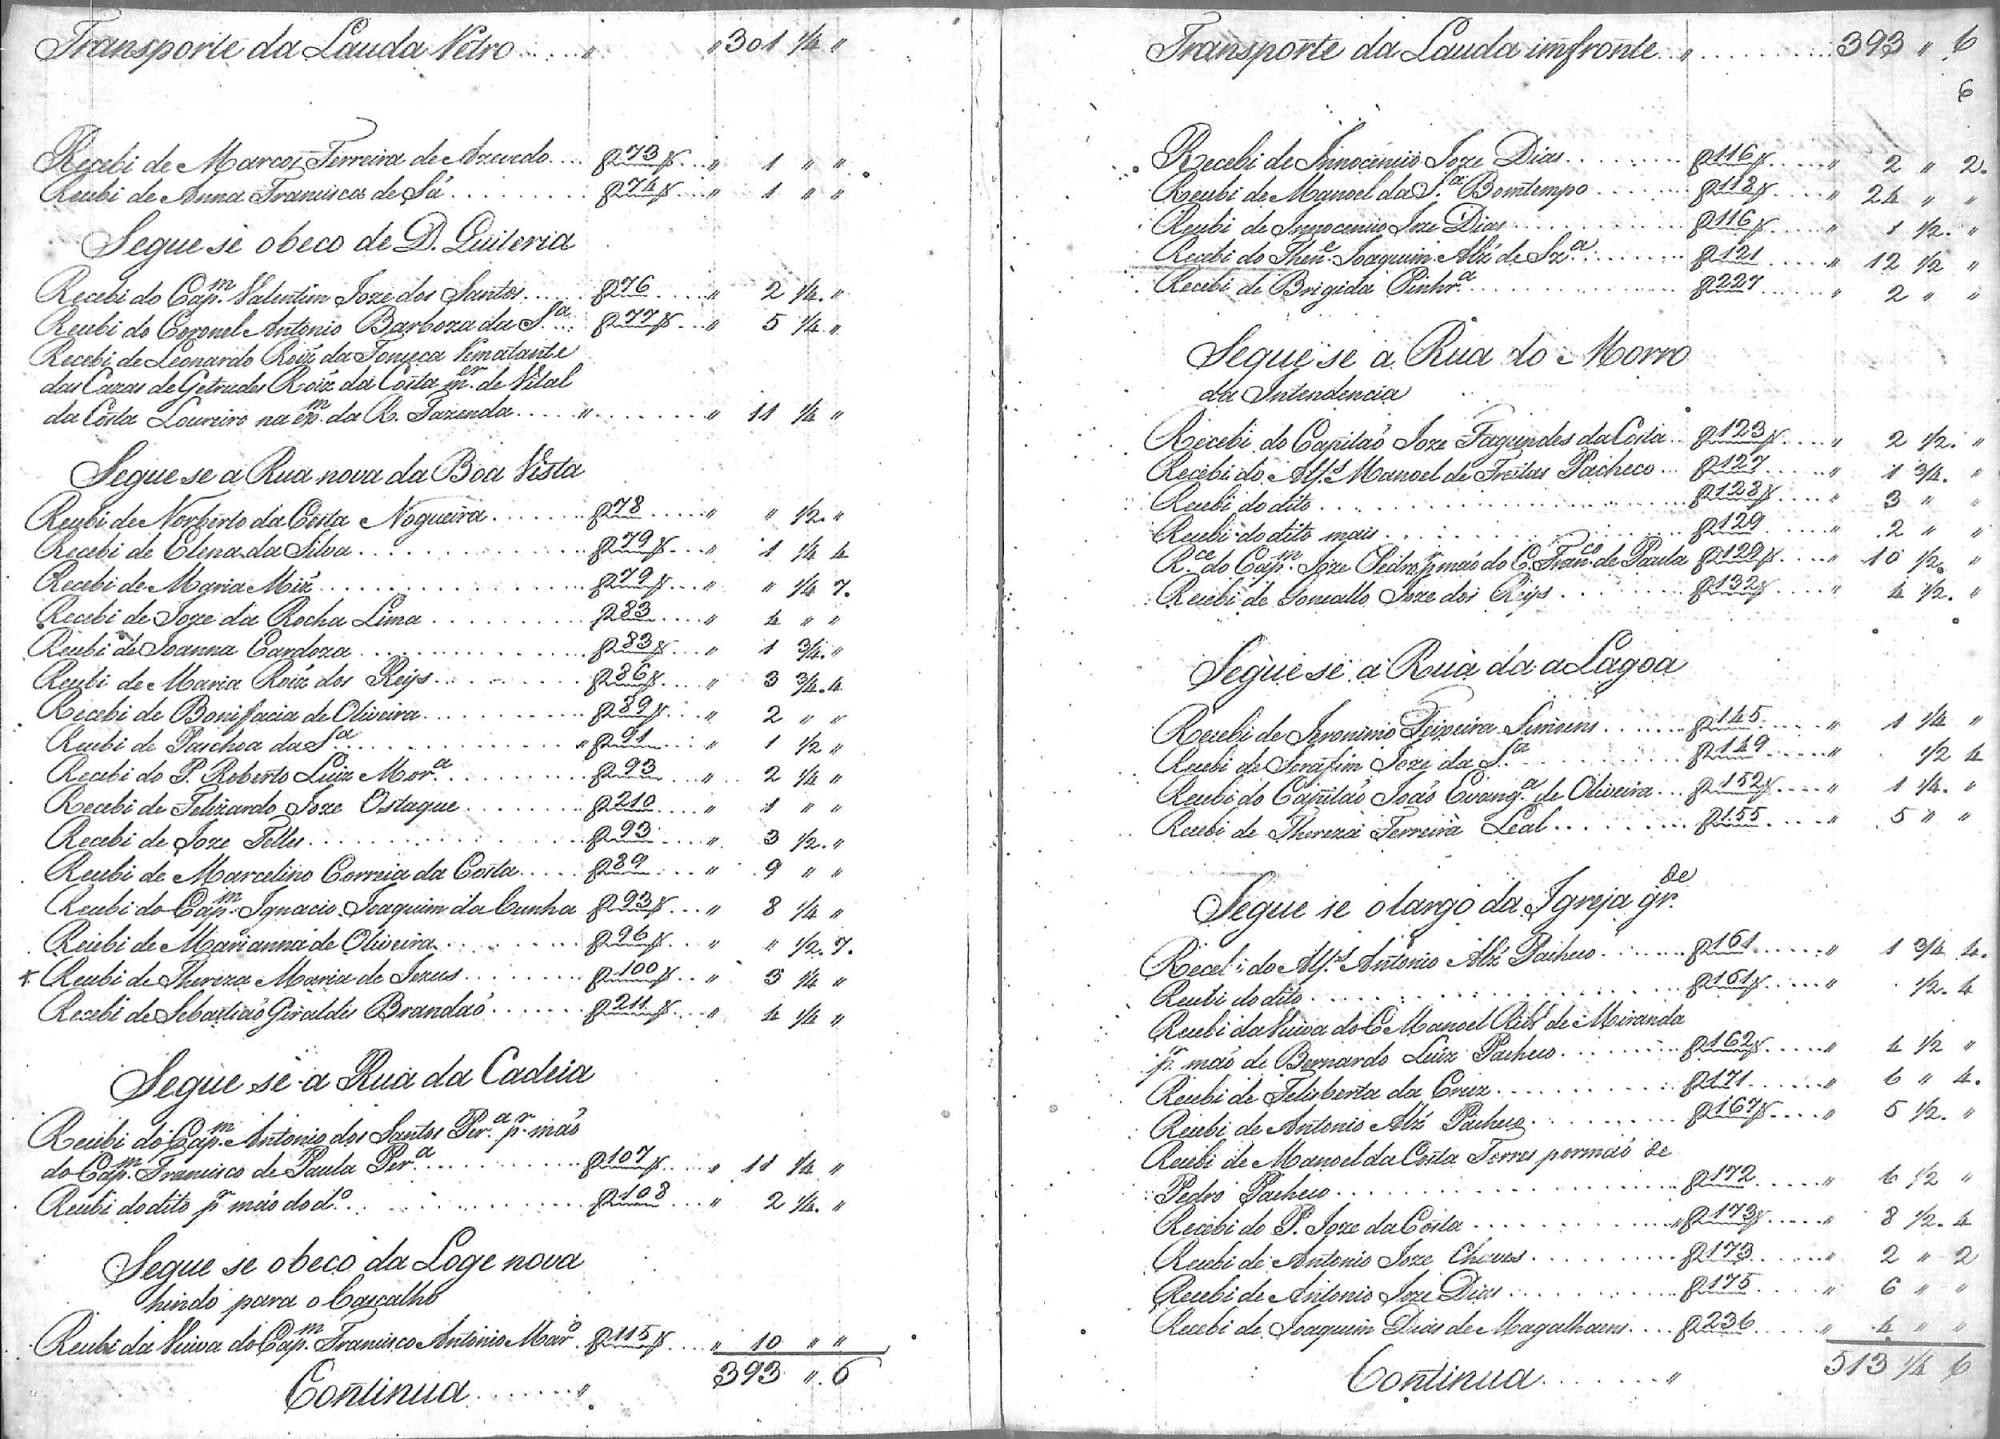 Transporte da Lauda Retro . . . . " " 301 1/4 "
Recebi de Marcos Ferreira de Azevedo . . . f 73 " 1 " "
Recebi de Anna Francisca de Sá . . . f 74 " 1 " "
Segue se o beco de D. Quiteria
Recebi do Capm. Valentim Joze dos Santos . . . f 76 " 2 1/4 "
Recebi do Coronel Antonio Barboza da Sa. . . . f 77 " 5 1/4 "
Recebi de Leonardo Roiz da Fonseca Rematante
das Cazas de Getrudes Roiz da Costa mer. de Vital
da Costa Loureiro na exm. da R. Fazenda . . . " " 11 1/4 "
Segue se a Rua nova da Boa Vista
Recebi de Norberto da Costa Nogueira . . . f 78 " " 1/2 "
Recebi de Elena da Silva . . . f 79 " 1 1/4 4
Recebi de Maria Miz . . . f 79 " " 1/4 7
Recebi de Joze da Rocha Lima . . . f 83 " 4 " "
Recebi de Joanna Cardoza . . . f 83 " 1 3/4 "
Recebi de Maria Roiz dos Reys . . . f 86 " 3 3/4 4
Recebi de Bonifacia de Oliveira . . . f 89 " 2 " "
Recebi de Paschoa da Sa. . . . " f 91 " 1 1/2 "
Recebi do P. Roberto Luiz Mora. . . . f 93 " 2 1/4 "
Recebi de Felizardo Joze Ostaque . . . f 210 " 1 " "
Recebi de Joze Telles . . . f 93 " 3 1/2 "
Recebi de Marcelino Correia da Costa . . . f 89 " 9 " "
Recebi do Capm. Ignacio Joaquim da Cunha f 93 " 8 1/4 "
Recebi de Marianna de Oliveira . . . f 96 " " 1/2 7
Recebi de Thereza Maria de Jezus . . . f 100 " 3 1/4 "
Recebi de Sebastiaõ Giraldes Brandaõ . . . f 211 " 4 1/4 "
Segue se a Rua da Cadeia
Recebi do Capm. Antonio dos Santos Pera. pr. maõ
do Capm. Francisco de Paula Pera. . . . f 107 " 11 1/4 "
Recebi do dito pr. maõ do do. . . . f 108 " 2 1/4 "
Segue se o beco da Loge nova
hindo para o Cascalho
Recebi da Viuva do Capm. Francisco Antonio Maro. f 115 " 10 " "
Continua . . . " 393 " 6
Transporte da Lauda imfronte . . " . . . 393 " 6
6
Recebi de Innocencio Joze Dias . . . f 116 " 2 " 2
Recebi de Manoel da Sa. Bomtempo . . . f 118 " 24 " "
Recebi de Innocencio Joze Dias . . . f 116 " 1 1/2 "
Recebi do Thene. Joaquim Alz de Sza. . . . f 121 " 12 1/2 "
Recebi de Brigida Pinhra. . . . f 227 " 2 " "
Segue se a Rua do Morro
da Intendencia
Recebi do Capitaõ Joze Fagundes da Costa . . f 123 " 2 1/2 "
Recebi do Alfs. Manoel de Freitas Pacheco . . f 127 " 1 3/4 "
Recebi do dito . . . f 128 " 3 " "
Recebi do dito mais . . . f 129 " 2 " "
Rce. do Capm. Joze Pedro pr. maõ do C. Franco. de Paula f 129 " 10 1/2 "
Recebi de Goncallo Joze dos Reys . . . f 132 " 4 1/2 "
Segue se a Rua da a Lagoa
Recebi de Jeronimo Teixeira Simoens . . . f 145 " 1 1/4 "
Recebi de Serafim Joze da Sa. . . . f 149 1/2 4
Recebi do Capitaõ Joaõ Evanga. de Oliveira . . . f 152 " 1 1/4 "
Recebi de Thereza Ferreira Leal . . . f 155 " 5 " "
Segue se o largo da Igreja grde.
Recebi do Alfs. Antonio Alz Pacheco . . . f 161 " 1 3/4 4
Recebi do dito . . . f 161 " 1/2 4
Recebi da Viuva do C Manoel Ribro de Miranda
pr. maõ de Bernardo Luiz Pacheco . . . f 162 " 4 1/2 "
Recebi de Felisberta da Cruz . . . f 171 " 6 " 4
Recebi de Antonio Alz Pacheco . . . f 167 " 5 1/2 "
Recebi de Manoel da Costa Torres por maõ de
Pedro Pacheco . . . f 172 " 6 1/2 "
Recebi do P. Joze da Costa . . . " f 173 " 8 1/2 4
Recebi de Antonio Joze Chaves . . . f 173 " 2 " 2
Recebi de Antonio Joze Dias . . . f 175 " 6 " "
Recebi de Joaquim Dias de Magalhaens . . . f 236 " 4 " "
Continua . . . " 513 1/4 6